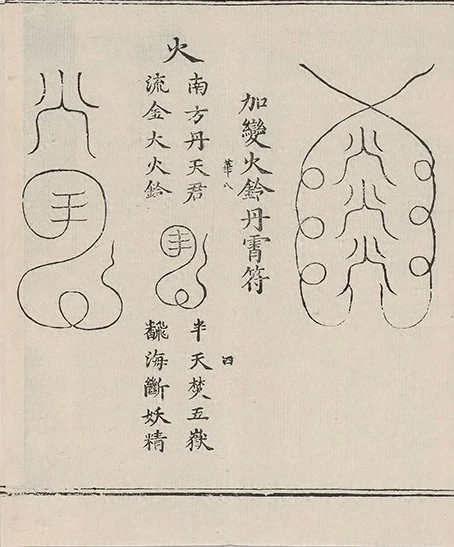 加變火鈴丹霄符
華八
四
火
南方丹天君
流金大火鈴
半天焚五嶽
飜海斷妖精